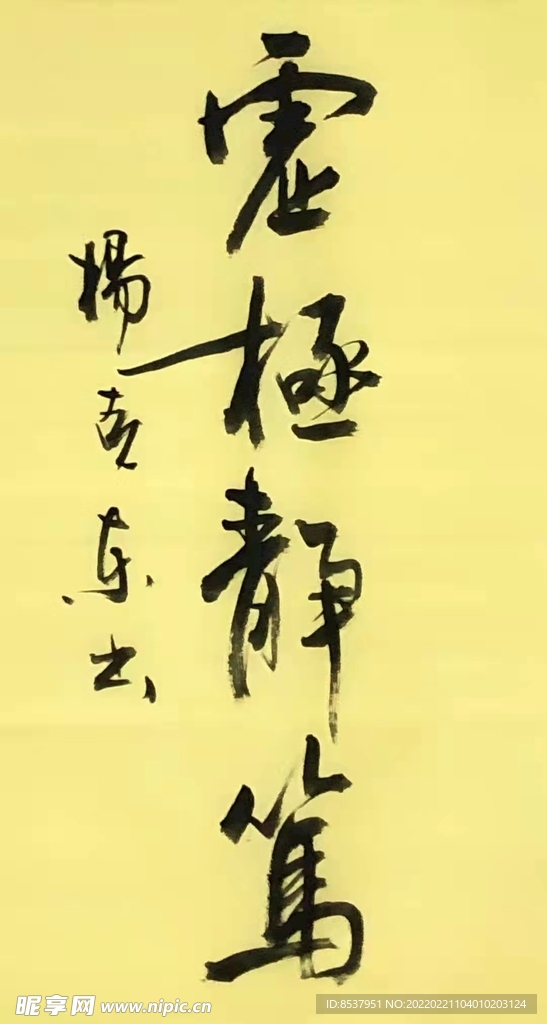 虚極静篤
楊吉東书
昵享网 www.nipic.cn
ID:8537951 NO:20220221104010203124